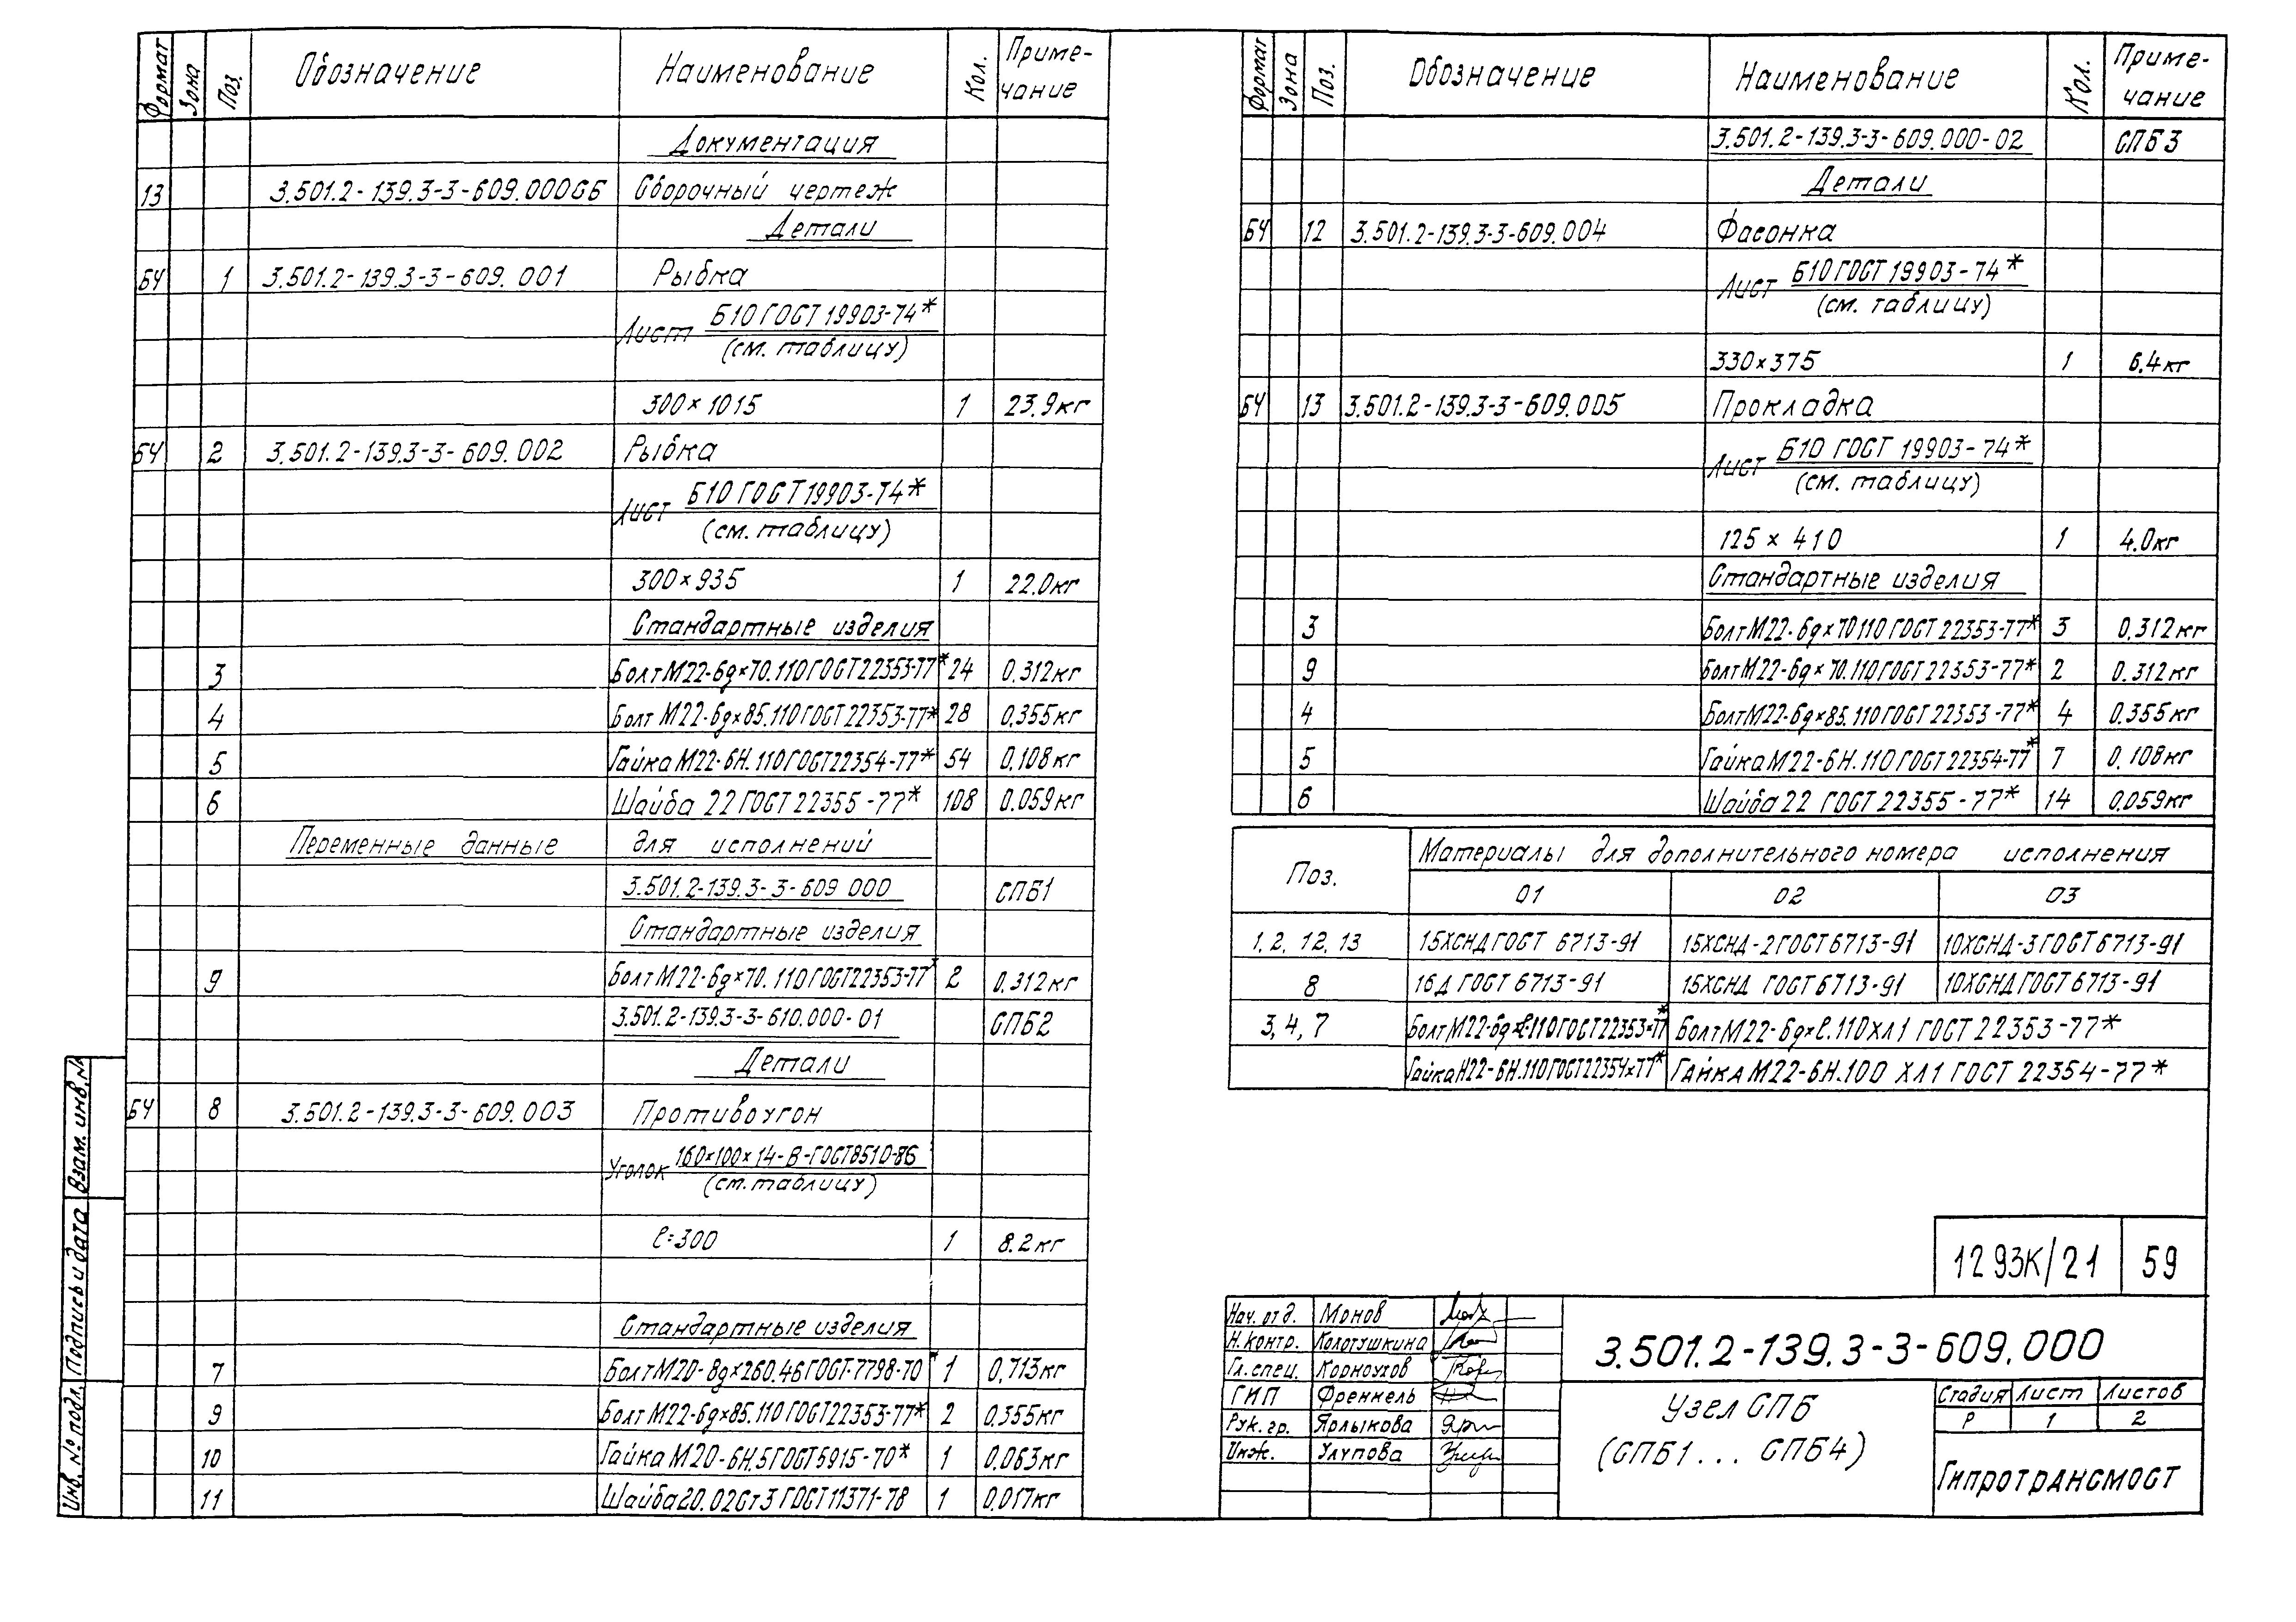 Формат Зона Поз. Обозначение Наименование Кол. Приме-чание
Документация
13 3.501.2-139.3-3-609.000СБ Сборочный чертеж
Детали
БЧ 1 3.501.2-139.3-3-609.001 Рыбка
Лист Б10 ГОСТ 19903-74*
(см. таблицу)
300×1015 1 23.9кг
БЧ 2 3.501.2-139.3-3-609.002 Рыбка
Лист Б10 ГОСТ 19903-74*
(см. таблицу)
300×935 1 22.0кг
Стандартные изделия
3 Болт М22-6g×70.110 ГОСТ 22353-77* 24 0.312кг
4 Болт М22-6g×85.110 ГОСТ 22353-77* 28 0.355кг
5 Гайка М22-6Н.110 ГОСТ 22354-77* 54 0.108кг
6 Шайба 22 ГОСТ 22355-77* 108 0.059кг
Переменные данные для исполнений
3.501.2-139.3-3-609 000 СПБ1
Стандартные изделия
9 Болт М22-6g×70.110 ГОСТ 22353-77* 2 0.312кг
3.501.2-139.3-3-610.000-01 СПБ2
Детали
БЧ 8 3.501.2-139.3-3-609.003 Противоугон
Уголок 160×100×14-В-ГОСТ 8510-86
(см. таблицу)
ℓ=300 1 8.2кг
Стандартные изделия
7 Болт М20-8g×260.46 ГОСТ 7798-70* 1 0,713кг
9 Болт М22-6g×85.110 ГОСТ 22353-77* 2 0.355кг
10 Гайка М20-6Н.5 ГОСТ 5915-70* 1 0.063кг
11 Шайба 20.02Ст3 ГОСТ 11371-78 1 0.017кг
Инв. № подл. Подпись и дата Взам. инв. №
Формат Зона Поз. Обозначение Наименование Кол. Приме-чание
3.501.2-139.3-3-609.000-02 СПБ3
Детали
БЧ 12 3.501.2-139.3-3-609.004 Фасонка
Лист Б10 ГОСТ 19903-74*
(см. таблицу)
330×375 1 6.4кг
БЧ 13 3.501.2-139.3-3-609.005 Прокладка
Лист Б10 ГОСТ 19903-74*
(см. таблицу)
125 × 410 1 4.0кг
Стандартные изделия
3 Болт М22-6g×70110 ГОСТ 22353-77* 3 0.312кг
9 Болт М22-6g×70.110 ГОСТ 22353-77* 2 0.312кг
4 Болт М22-6g×85.110 ГОСТ 22353-77* 4 0.355кг
5 Гайка М22-6Н.110 ГОСТ 22354-77* 7 0.108кг
6 Шайба 22 ГОСТ 22355-77* 14 0.059кг
Поз. Материалы для дополнительного номера исполнения
01 02 03
1, 2, 12, 13 15ХСНД ГОСТ 6713-91 15ХСНД-2 ГОСТ 6713-91 10ХСНД-3 ГОСТ 6713-91
8 16Д ГОСТ 6713-91 15ХСНД ГОСТ 6713-91 10ХСНД ГОСТ 6713-91
3, 4, 7 Болт М22-6g×ℓ.110 ГОСТ 22353-77* Болт М22-6g×ℓ.110ХЛ1 ГОСТ 22353-77*
Гайка Н22-6Н.110 ГОСТ 22354×77* Гайка М22-6Н.100 ХЛ1 ГОСТ 22354-77*
1293К/21 59
Нач. отд. Монов
Н. контр. Колотушкина
Гл. спец. Корноухов
ГИП Френкель
Рук. гр. Ярлыкова
Инж. Улупова
3.501.2-139.3-3-609.000
Узел СПБ
(СПБ1... СПБ4)
Стадия Лист Листов
Р 1 2
Гипротрансмост